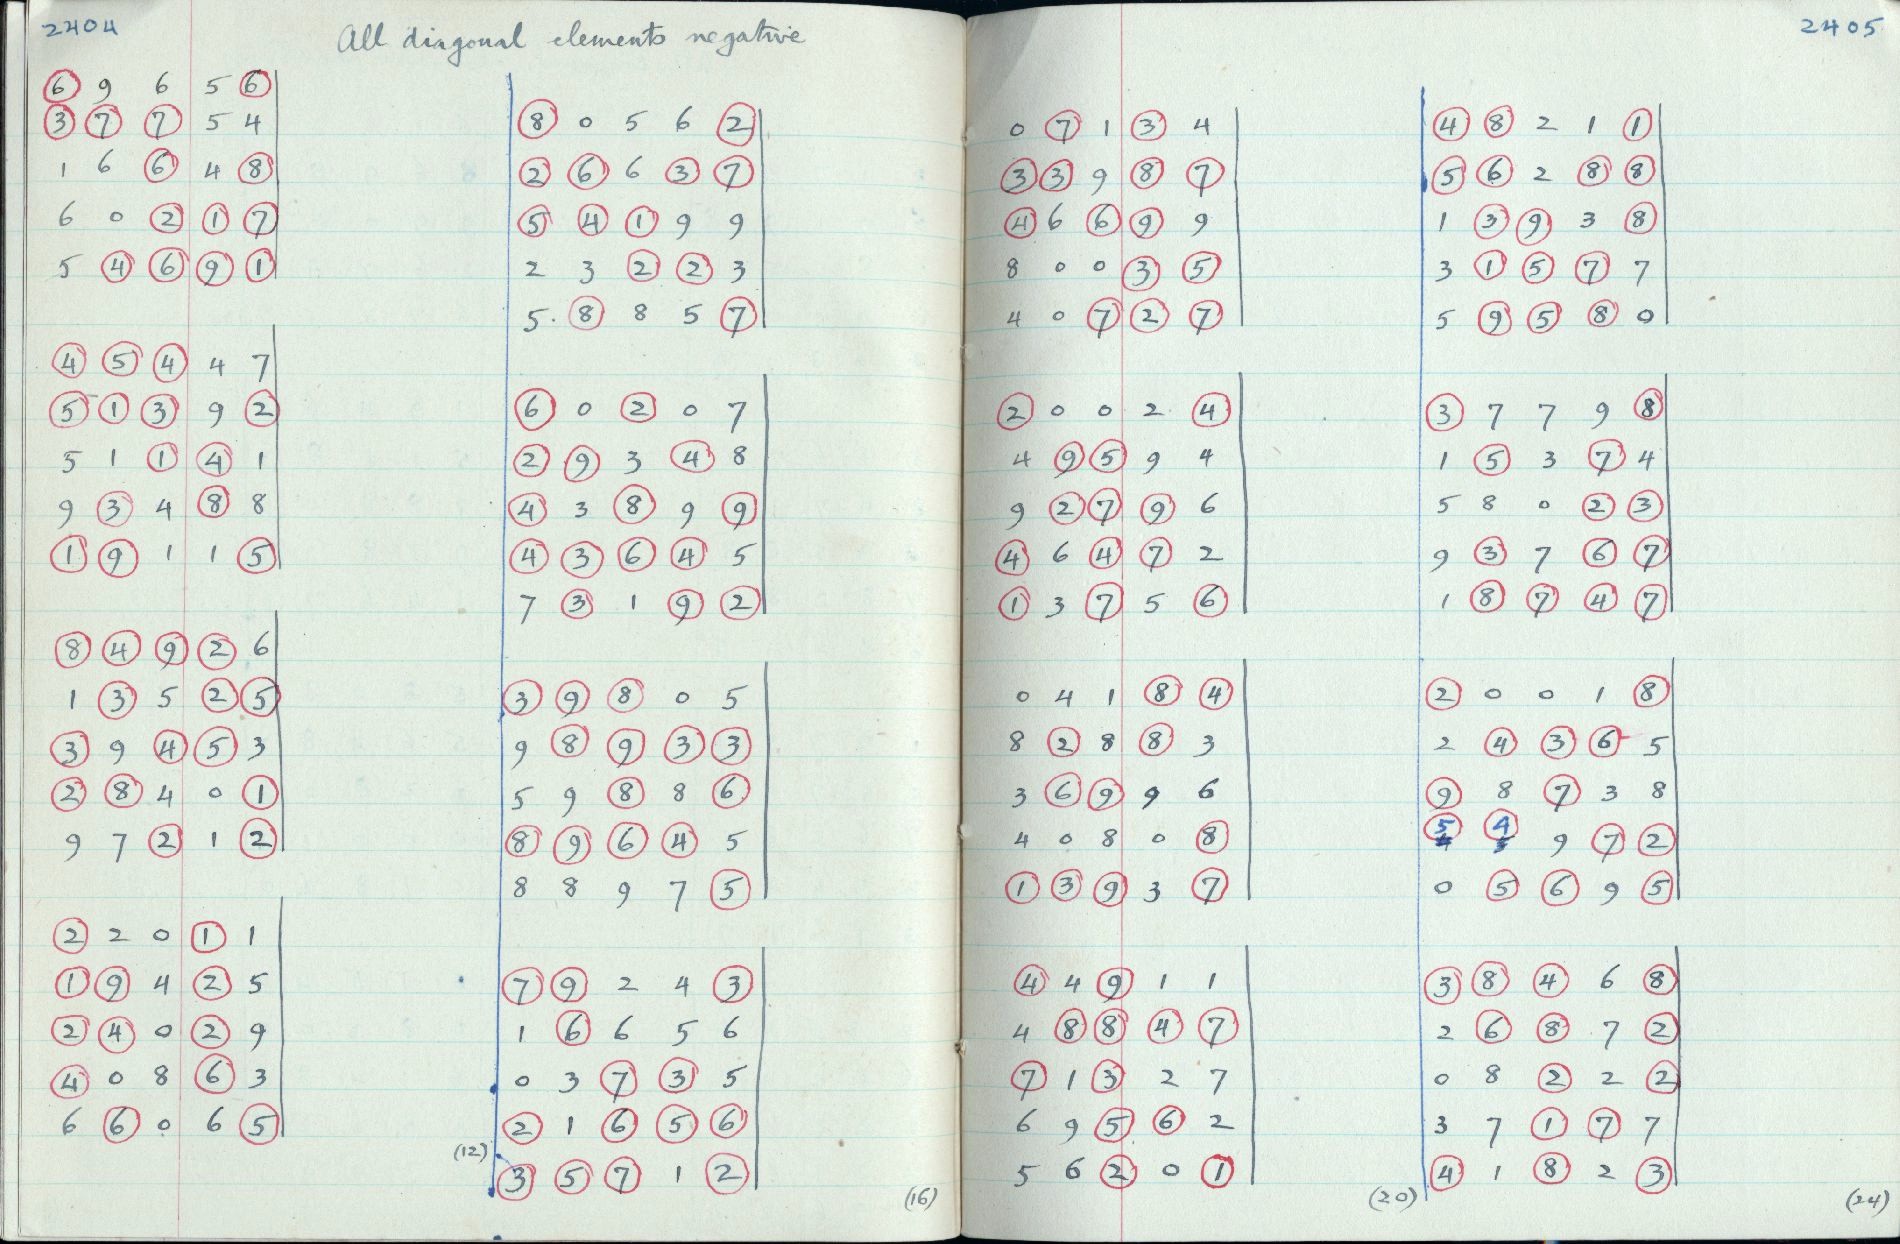 2404
All diagonal elements negative
6 9 6 5 6
3 7 7 5 4
1 6 6 4 8
6 0 2 1 7
5 4 6 9 1
4 5 4 4 7
5 1 3 9 2
5 1 1 4 1
9 3 4 8 8
1 9 1 1 5
8 4 9 2 6
1 3 5 2 5
3 9 4 5 3
2 8 4 0 1
9 7 2 1 2
2 2 0 1 1
1 9 4 2 5
2 4 0 2 9
4 0 8 6 3
6 6 0 6 5
(12)
8 0 5 6 2
2 6 6 3 7
5 4 1 9 9
2 3 2 2 3
5. 8 8 5 7
6 0 2 0 7
2 9 3 4 8
4 3 8 9 9
4 3 6 4 5
7 3 1 9 2
3 9 8 0 5
9 8 9 3 3
5 9 8 8 6
8 9 6 4 5
8 8 9 7 5
7 9 2 4 3
1 6 6 5 6
0 3 7 3 5
2 1 6 5 6
3 5 7 1 2
(16)
2405
0 7 1 3 4
3 3 9 8 7
4 6 6 9 9
8 0 0 3 5
4 0 7 2 7
2 0 0 2 4
4 9 5 9 4
9 2 7 9 6
4 6 4 7 2
1 3 7 5 6
0 4 1 8 4
8 2 8 8 3
3 6 9 9 6
4 0 8 0 8
1 3 9 3 7
4 4 9 1 1
4 8 8 4 7
7 1 3 2 7
6 9 5 6 2
5 6 2 0 1
(20)
4 8 2 1 1
5 6 2 8 8
1 3 9 3 8
3 1 5 7 7
5 9 5 8 0
3 7 7 9 8
1 5 3 7 4
5 8 0 2 3
9 3 7 6 7
1 8 7 4 7
2 0 0 1 8
2 4 3 6 5
9 8 7 3 8
5 4 9 7 2
0 5 6 9 5
3 8 4 6 8
2 6 8 7 2
0 8 2 2 2
3 7 1 7 7
4 1 8 2 3
(24)